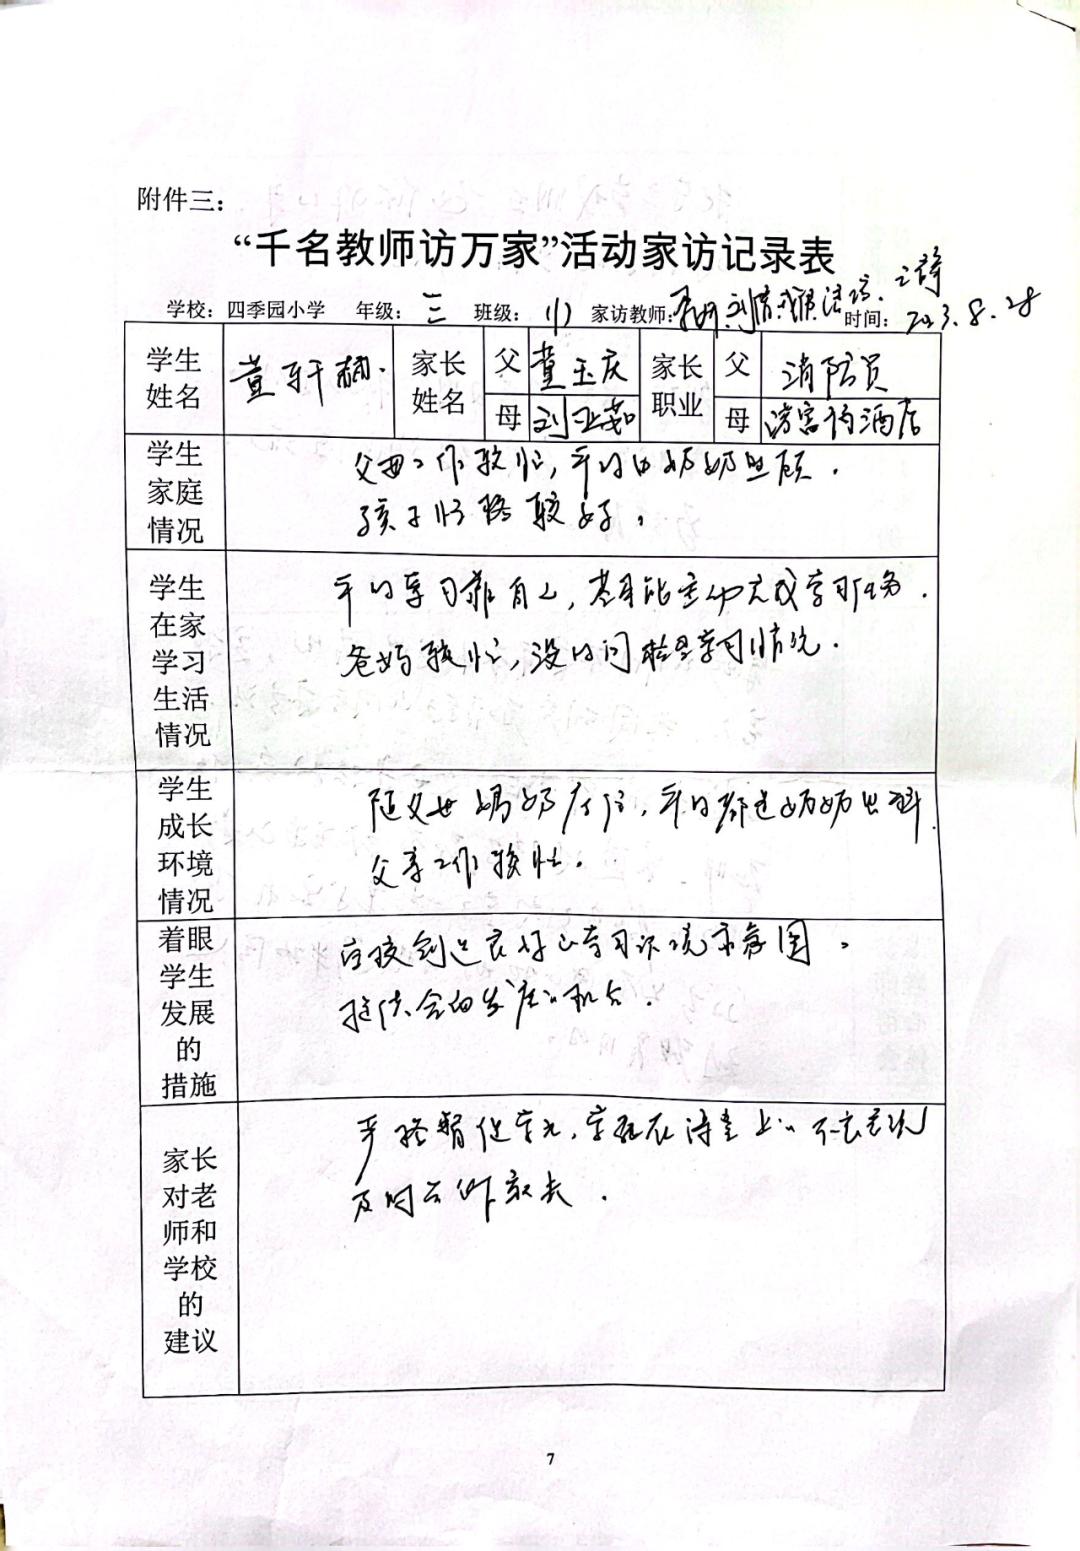 附件三：
“千名教师访万家”活动家访记录表
学校：四季园小学 年级：三 班级：(1) 家访教师： 时间：2023.8.28
学生姓名 董轩 家长姓名 父 董玉庆 家长职业 父 消防员
母 刘亚茹 母 酒店
学生家庭情况
父母工作较忙，平时由奶奶照顾．
孩子性格较好，
学生在家学习生活情况
平时学习靠自己，基本能主动完成学习任务．
爸妈较忙，没时间检查学习情况．
学生成长环境情况
随父母奶奶居住，平时都是奶奶照料
父亲工作较忙．
着眼学生发展的措施
应该创造良好的学习环境和氛围，
提供全面发展的机会．
家长对老师和学校的建议
严格督促学生，学校在课堂上的不良表现
及时告诉家长．
7